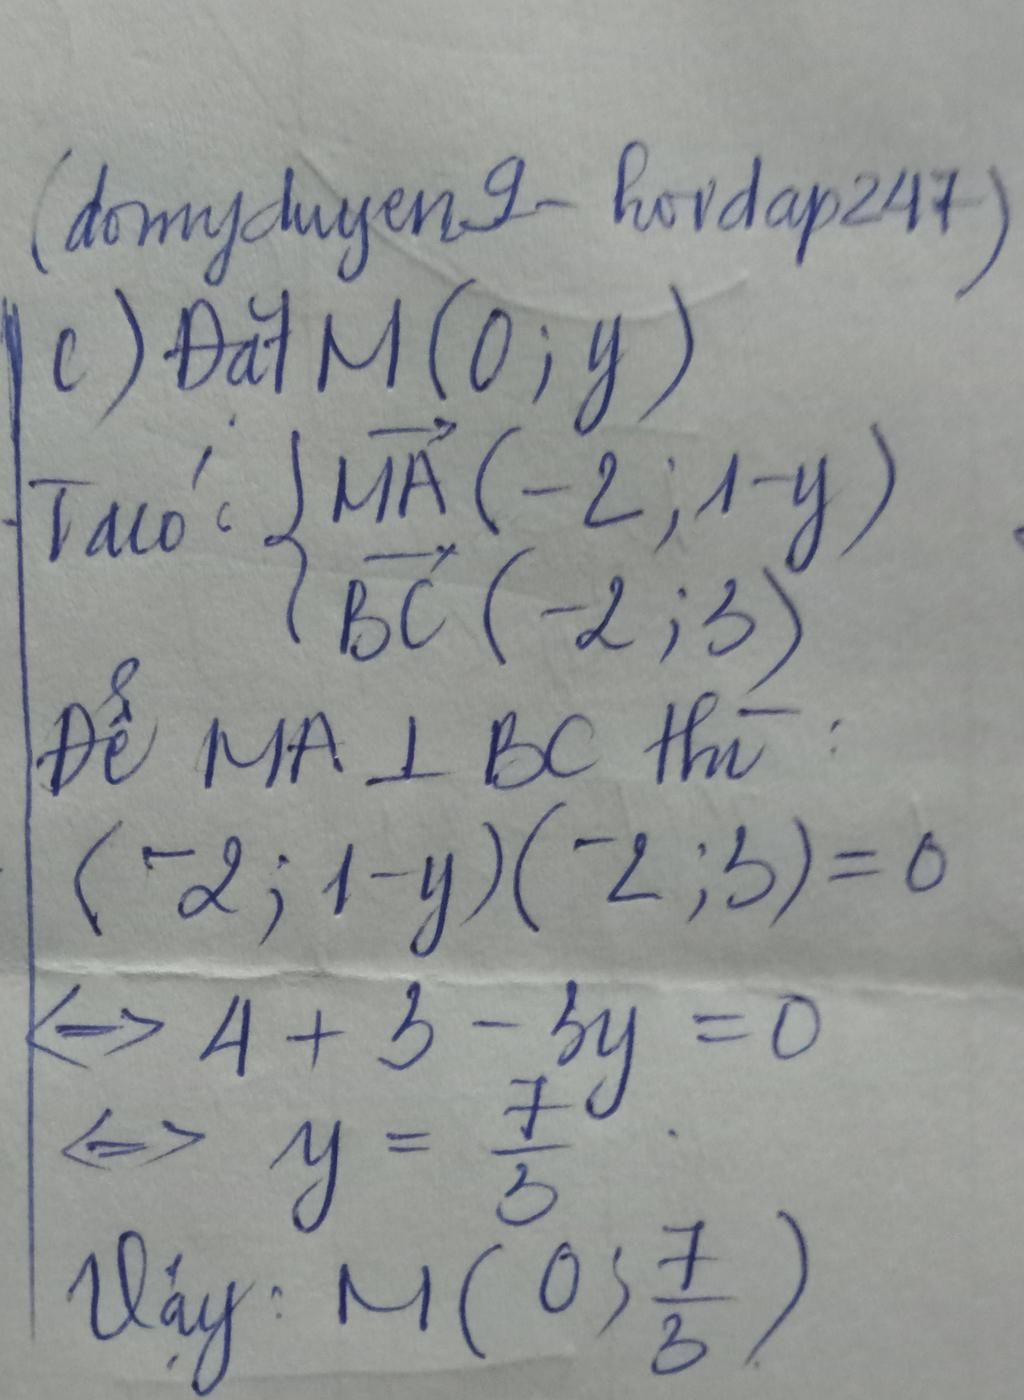 (domyduyen9 - hoidap247)
c) Đặt M(0; y)
Ta có: { MA→ (-2; 1-y)
BC→ (-2; 3)
Để MA ⊥ BC thì:
(-2; 1-y)(-2; 3) = 0
<=> 4 + 3 - 3y = 0
<=> y = 7/3.
Vậy: M(0; 7/3)